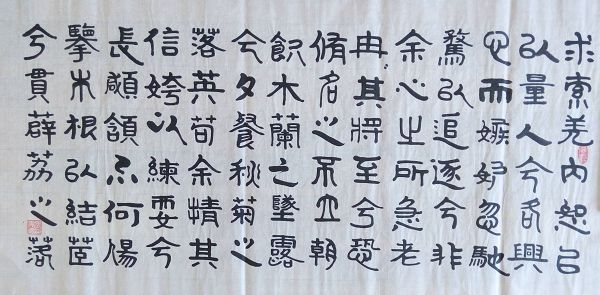 求索羌內恕己
以量人兮各興
心而嫉妒忽馳
騖以追逐兮非
余心之所急老
冉〻其將至兮恐
脩名之不立朝
飲木蘭之墜露
兮夕餐秋菊之
落英苟余情其
信姱以練要兮
長顑頷亦何傷
擥木根以結茝
兮貫薜荔之落